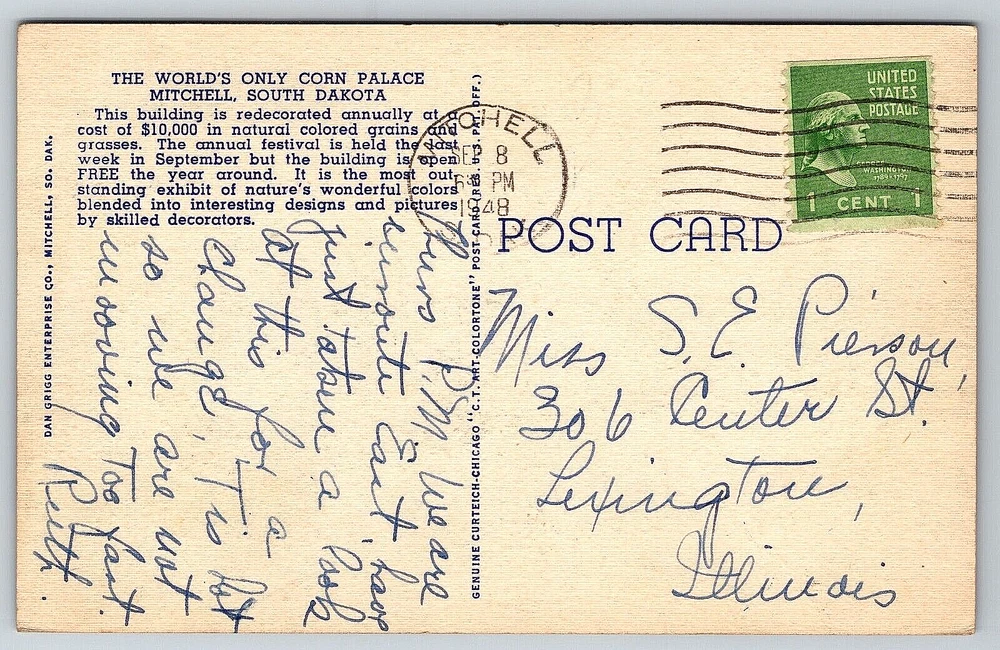 THE WORLD'S ONLY CORN PALACE
MITCHELL, SOUTH DAKOTA
This building is redecorated annually at a
cost of $10,000 in natural colored grains and
grasses. The annual festival is held the last
week in September but the building is open
FREE the year around. It is the most out-
standing exhibit of nature's wonderful colors
blended into interesting designs and pictures
by skilled decorators.
DAN GRIGG ENTERPRISE CO., MITCHELL, SO. DAK.
Thurs P.M. We are
enroute East, have
just taken a look
at this for a
change, T is hot
so we are not
mooving Too fast.
Ruth.
GENUINE CURTEICH-CHICAGO "C.T. ART-COLORTONE" POST CARD (REG. U.S. PAT. OFF.)
MITCHELL
SEP 8
PM
1948
UNITED
STATES
POSTAGE
WASHINGTON
1789-1797
1 CENT 1
POST CARD
Miss S. E Pierson,
306 Center St.
Lexington,
Illinois